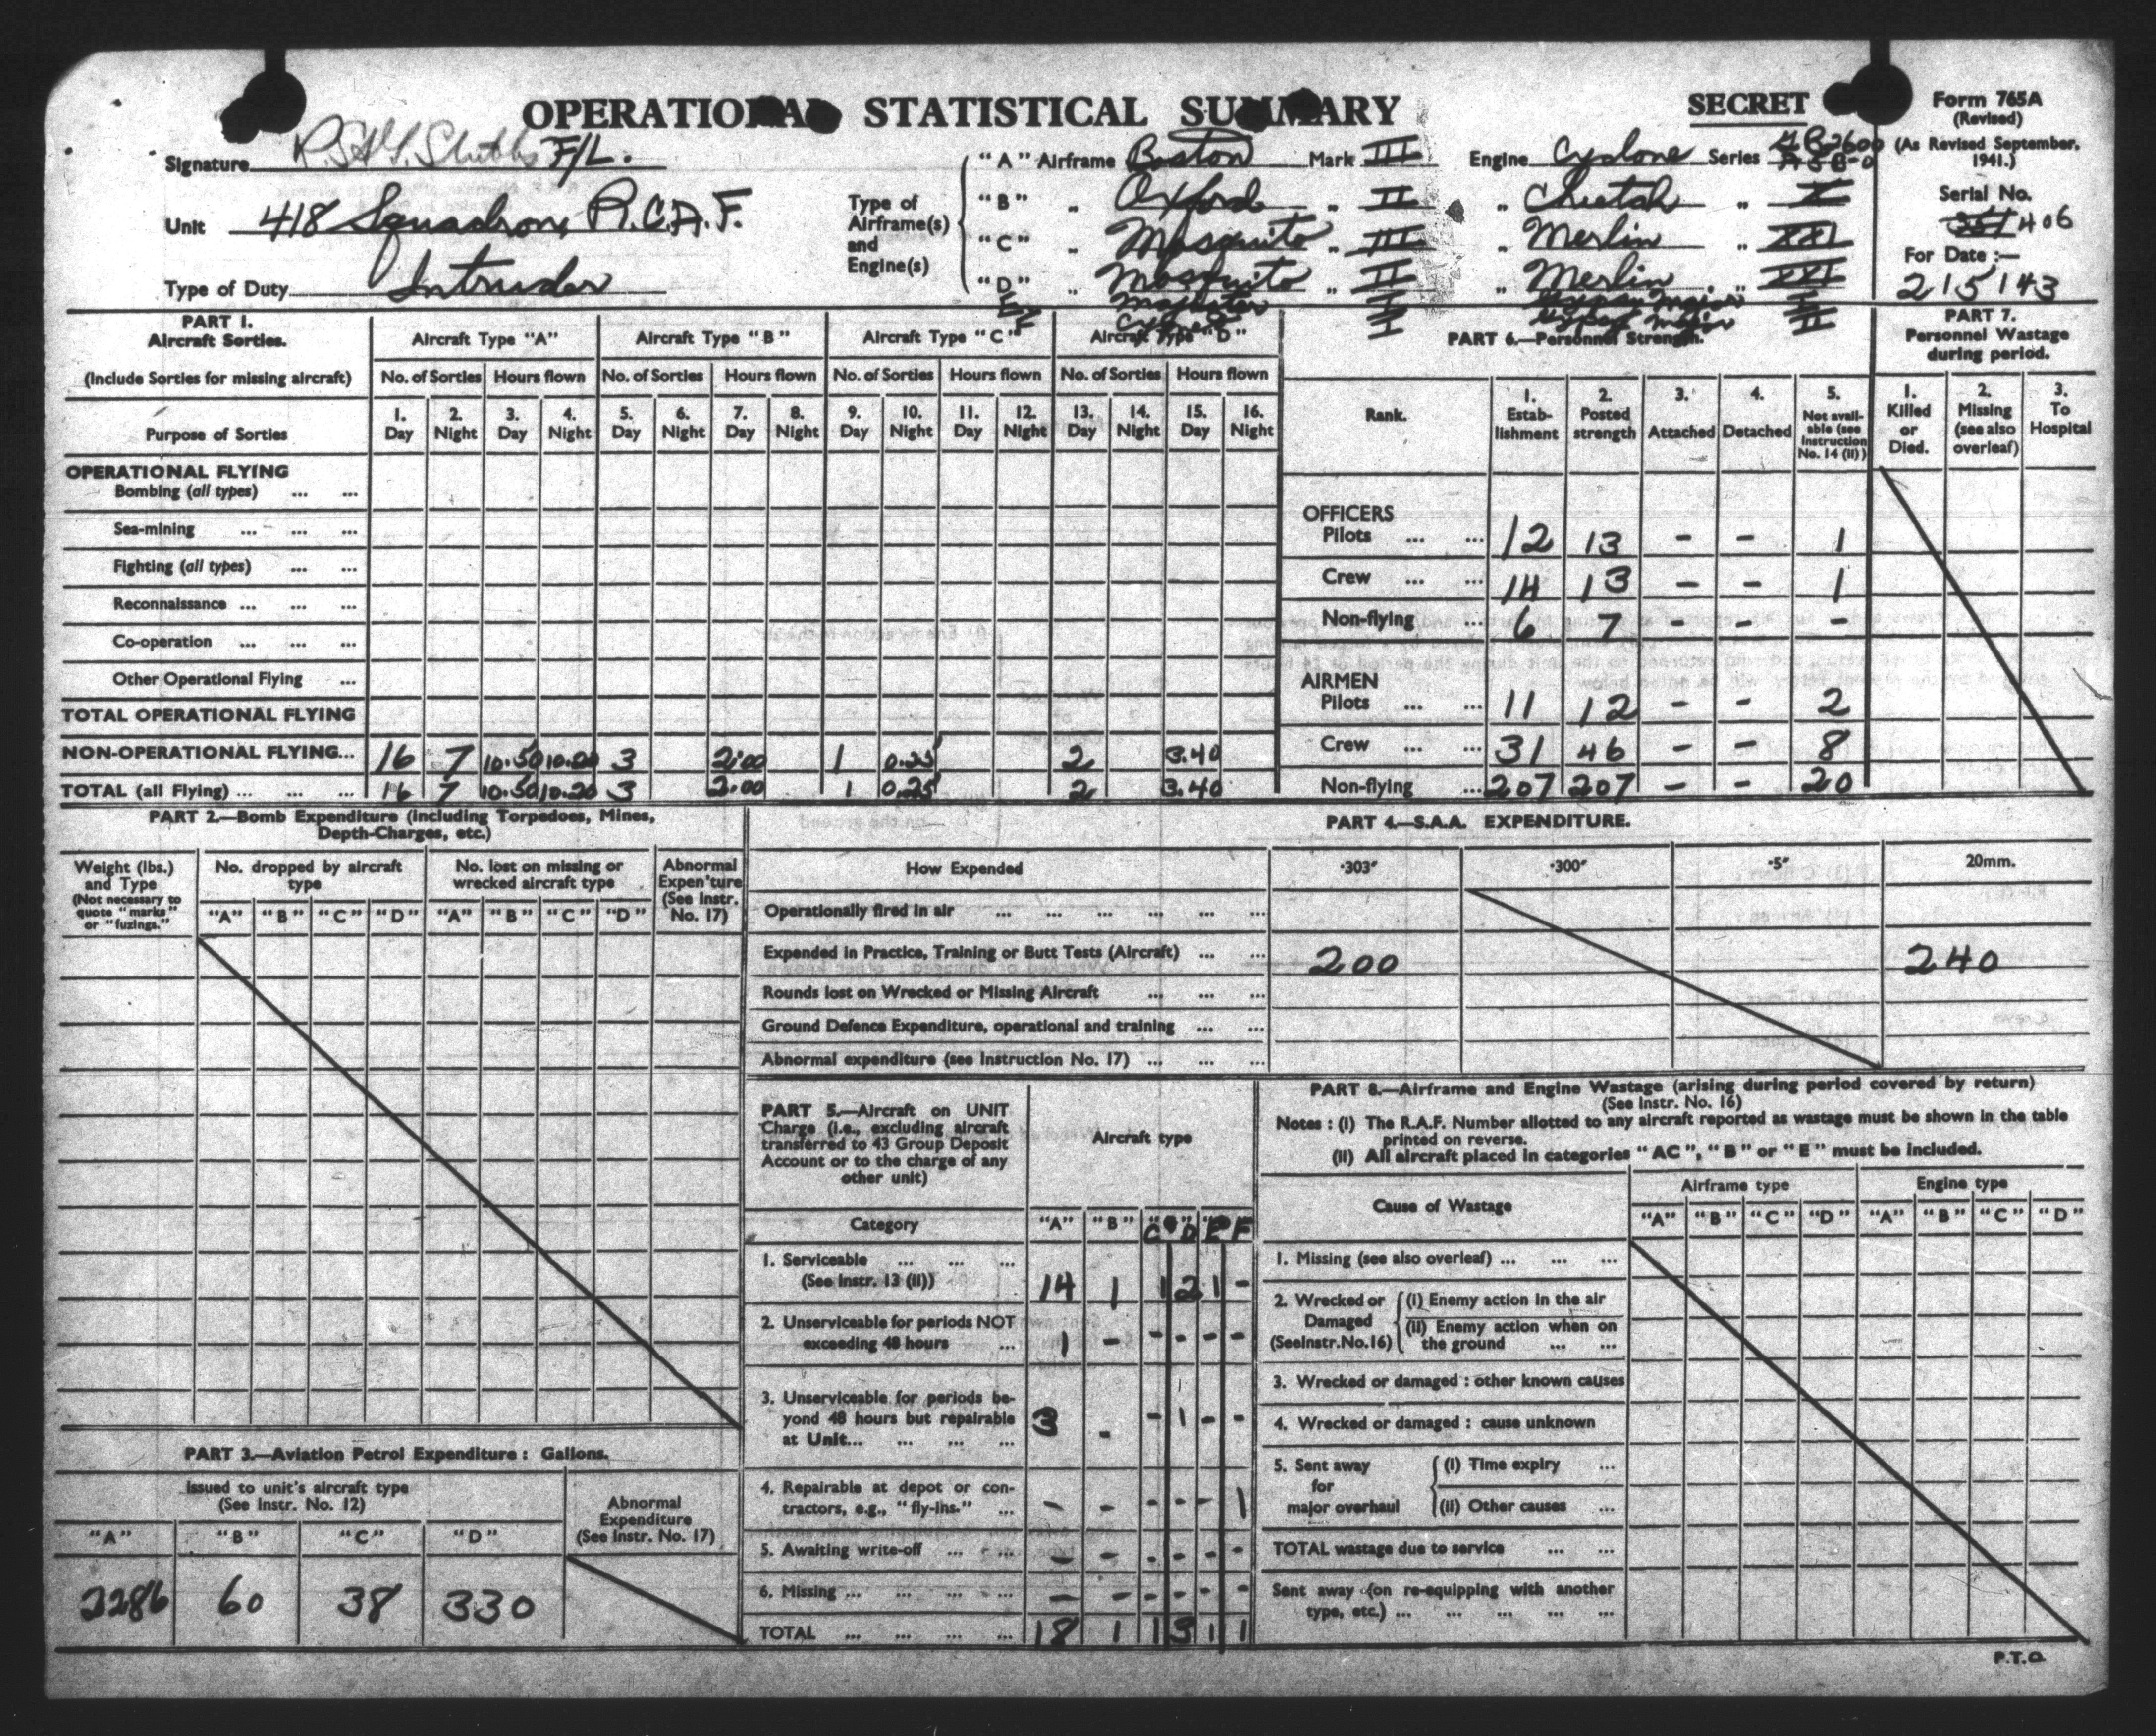 OPERATIONAL STATISTICAL SUMMARY
SECRET
Form 765A
(Revised)
(As Revised September, 1941.)
Serial No.
406
For Date :—
2/5/43
Signature F/L.
Unit 418 Squadron, R.C.A.F.
Type of Duty Intruder
Type of Airframe(s) and Engine(s)
"A" Airframe Boston Mark III Engine Cyclone Series GR2600
"B" „ Oxford „ II „ Cheetah „ X
"C" „ Mosquito „ III „ Merlin „ XXI
"D" „ Mosquito „ II „ Merlin „ XXI
E Magister I Gypsy Major I
F I Gypsy Major II
PART 1.
Aircraft Sorties.
(Include Sorties for missing aircraft)
Aircraft Type "A" Aircraft Type "B" Aircraft Type "C" Aircraft Type "D"
No. of Sorties Hours flown No. of Sorties Hours flown No. of Sorties Hours flown No. of Sorties Hours flown
Purpose of Sorties
1. Day 2. Night 3. Day 4. Night 5. Day 6. Night 7. Day 8. Night 9. Day 10. Night 11. Day 12. Night 13. Day 14. Night 15. Day 16. Night
OPERATIONAL FLYING
Bombing (all types) ... ...
Sea-mining ... ... ...
Fighting (all types) ... ...
Reconnaissance ... ... ...
Co-operation ... ... ...
Other Operational Flying ...
TOTAL OPERATIONAL FLYING
NON-OPERATIONAL FLYING... 16 7 10.50 10.20 3 2.00 1 0.25 2 3.40
TOTAL (all Flying) ... ... ... 16 7 10.50 10.20 3 2.00 1 0.25 2 3.40
PART 6.—Personnel Strength.
Rank.
1. Estab-lishment
2. Posted strength
3. Attached
4. Detached
5. Not avail-able (see Instruction No. 14 (ii))
OFFICERS
Pilots ... ... 12 13 - - 1
Crew ... ... 14 13 - - 1
Non-flying ... 6 7 - - -
AIRMEN
Pilots ... ... 11 12 - - 2
Crew ... ... 31 46 - - 8
Non-flying ... 207 207 - - 20
PART 7.
Personnel Wastage during period.
1. Killed or Died.
2. Missing (see also overleaf)
3. To Hospital
PART 2.—Bomb Expenditure (including Torpedoes, Mines,
Depth-Charges, etc.)
Weight (lbs.) and Type (Not necessary to quote "marks" or "fuzings.")
No. dropped by aircraft type
No. lost on missing or wrecked aircraft type
Abnormal Expen'ture (See Instr. No. 17)
"A" "B" "C" "D" "A" "B" "C" "D"
PART 4.—S.A.A. EXPENDITURE.
How Expended ·303" ·300" ·5" 20mm.
Operationally fired in air ... ... ... ... ... ...
Expended in Practice, Training or Butt Tests (Aircraft) ... ... 200 240
Rounds lost on Wrecked or Missing Aircraft ... ... ...
Ground Defence Expenditure, operational and training ... ...
Abnormal expenditure (see Instruction No. 17) ... ... ...
PART 3.—Aviation Petrol Expenditure : Gallons.
Issued to unit's aircraft type
(See Instr. No. 12)
Abnormal Expenditure (See Instr. No. 17)
"A" "B" "C" "D"
2286 60 38 330
PART 5.—Aircraft on UNIT
Charge (i.e., excluding aircraft
transferred to 43 Group Deposit
Account or to the charge of any
other unit)
Aircraft type
Category "A" "B" C D E F
1. Serviceable ... ... ...
(See Instr. 13 (ii)) 14 1 1 2 1 -
2. Unserviceable for periods NOT
exceeding 48 hours ... 1 - - - - -
3. Unserviceable for periods be-
yond 48 hours but repairable
at Unit... ... ... ... 3 - - 1 - -
4. Repairable at depot or con-
tractors, e.g., "fly-ins." ... - - - - - 1
5. Awaiting write-off ... - ... - - - - - -
6. Missing ... ... ... ... - - - - - -
TOTAL ... ... ... ... 18 1 1 3 1 1
PART 8.—Airframe and Engine Wastage (arising during period covered by return)
(See Instr. No. 16)
Notes : (i) The R.A.F. Number allotted to any aircraft reported as wastage must be shown in the table
printed on reverse.
(ii) All aircraft placed in categories "AC", "B" or "E" must be included.
Cause of Wastage
Airframe type Engine type
"A" "B" "C" "D" "A" "B" "C" "D"
1. Missing (see also overleaf) ... ... ...
2. Wrecked or Damaged (See Instr. No. 16)
(i) Enemy action in the air
(ii) Enemy action when on
the ground ... ...
3. Wrecked or damaged : other known causes
4. Wrecked or damaged : cause unknown
5. Sent away for major overhaul
(i) Time expiry ...
(ii) Other causes ...
TOTAL wastage due to service ... ...
Sent away (on re-equipping with another
type, etc.) ... ... ... ... ...
P.T.O.